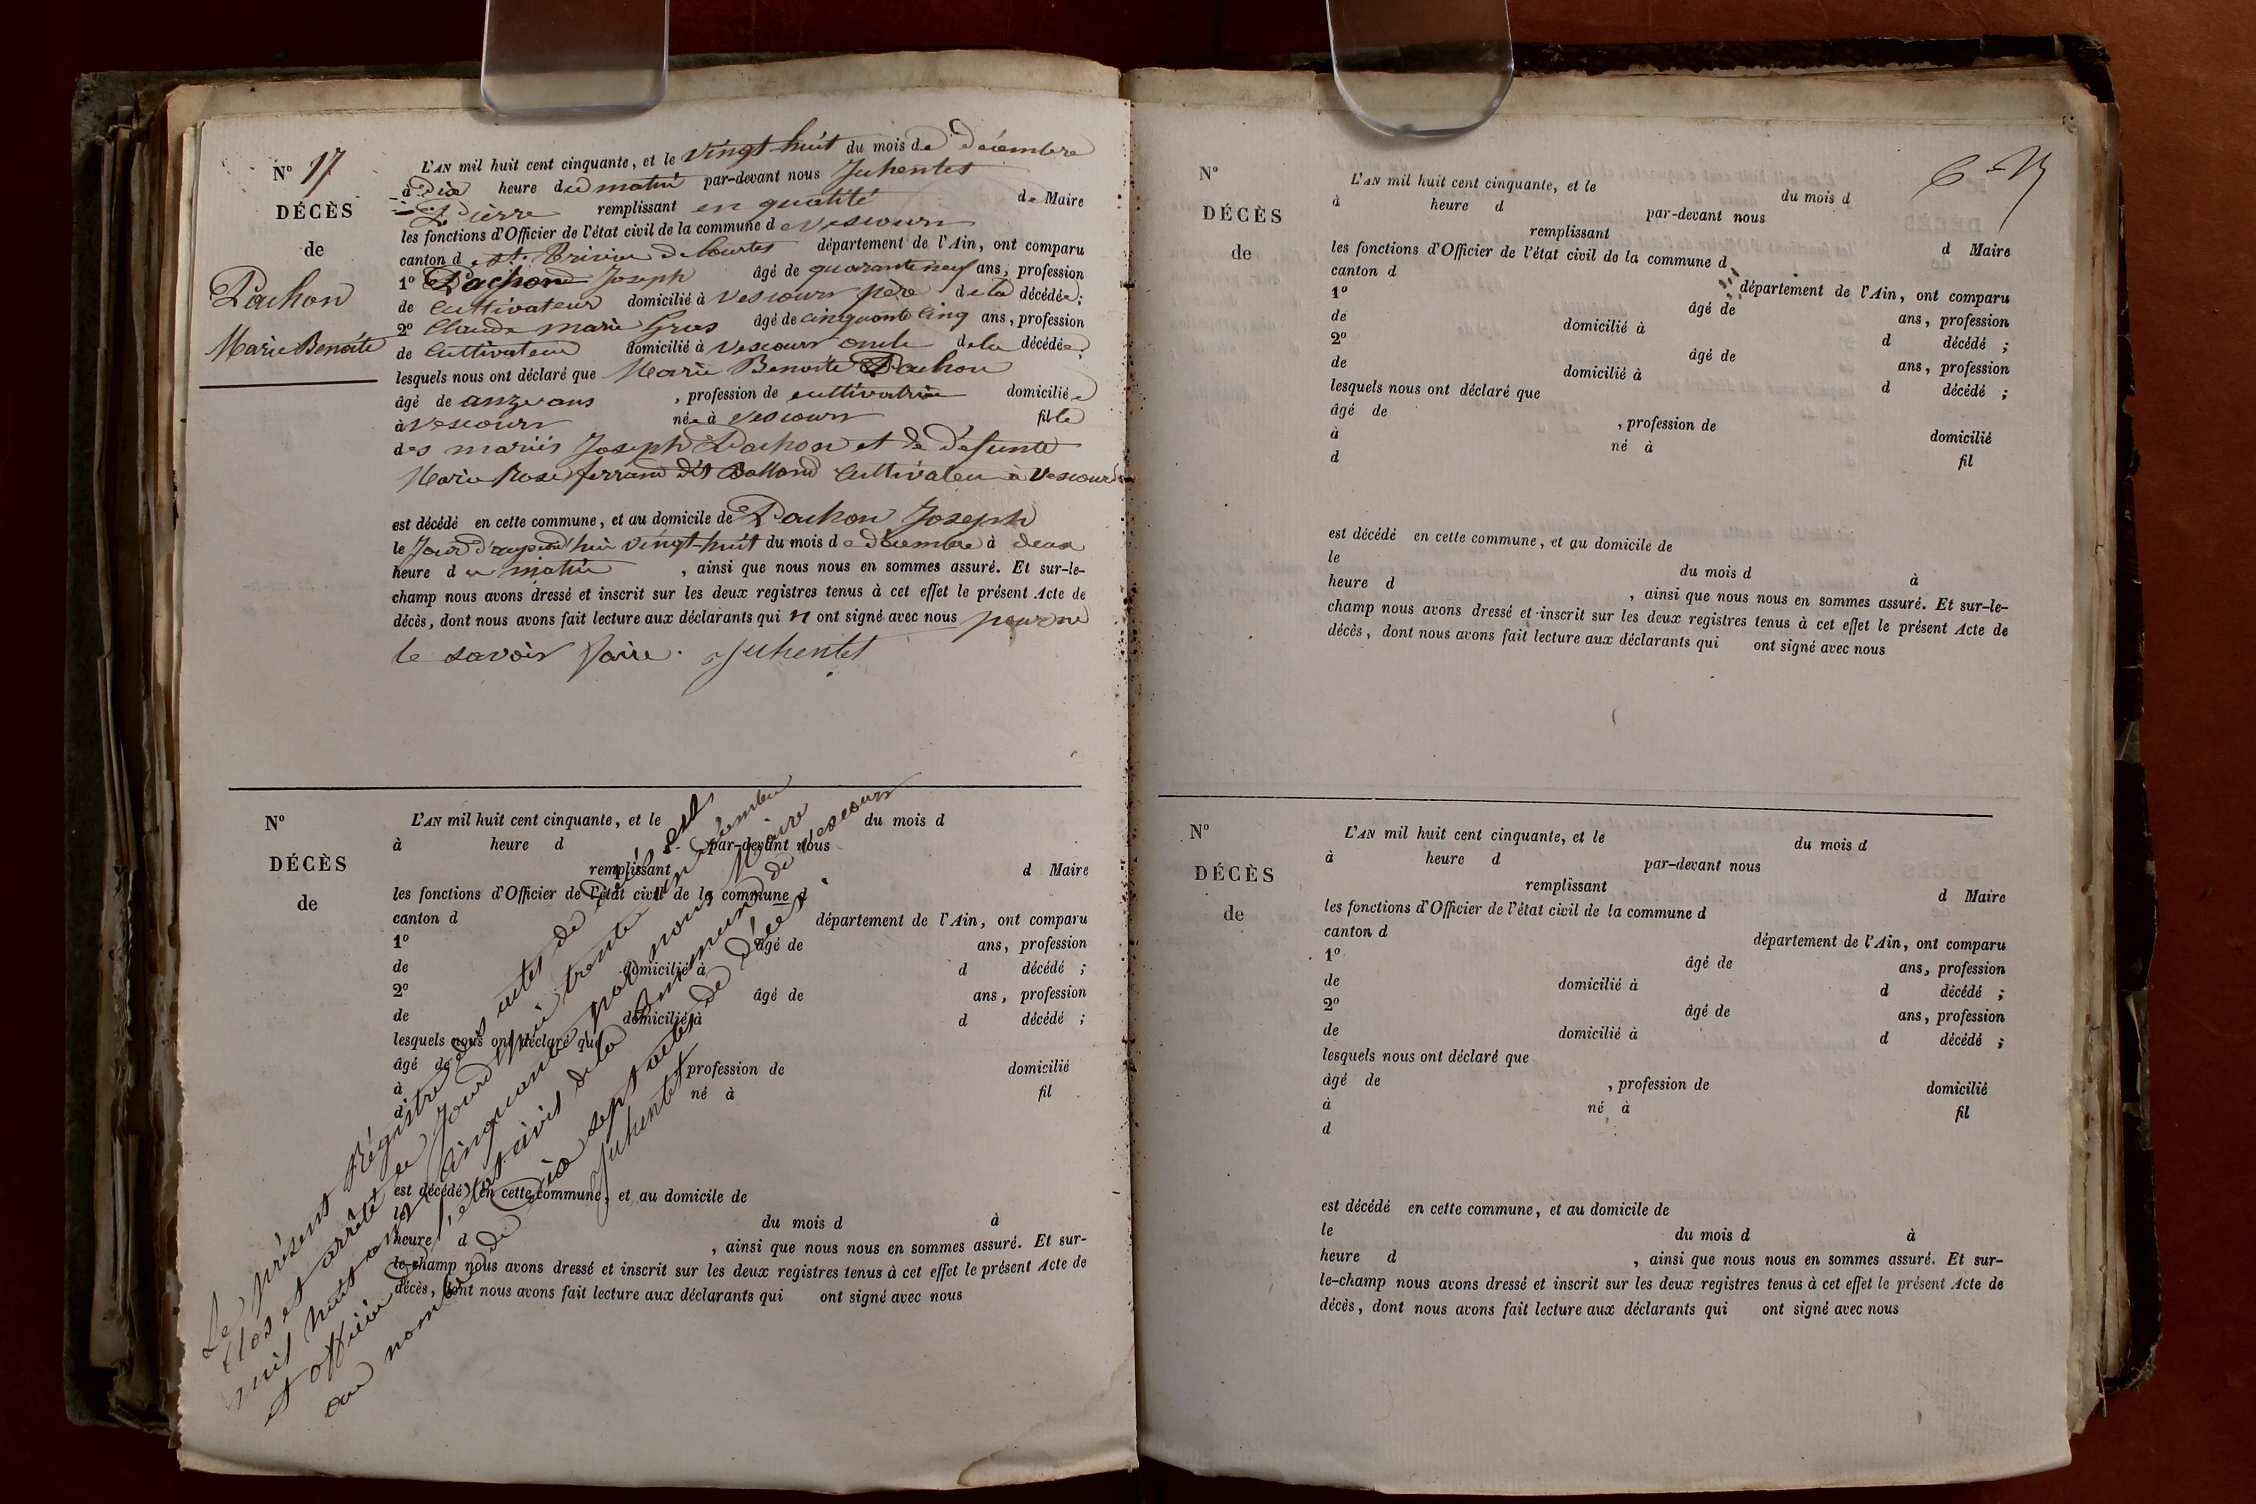 N° 17
DÉCÈS
de
Pachon
Marie Benoite
L'AN mil huit cent cinquante, et le vingt-huit du mois de décembre
à Dix heure du matin par-devant nous Juhentet
Pierre remplissant en qualité de Maire
les fonctions d'Officier de l'état civil de la commune de Vescours
canton de St. Trivier de Courtes département de l'Ain, ont comparu
1° Pachon Joseph âgé de quarante neuf ans, profession
de Cultivateur domicilié à Vescours père de la décédée;
2° Claude Marie Gros âgé de cinquante cinq ans, profession
de Cultivateur domicilié à Vescours oncle de la décédée;
lesquels nous ont déclaré que Marie Benoite Pachon
âgé de onze ans , profession de cultivatrice domiciliée
à Vescours née à Vescours fille
des mariés Joseph Pachon et de défunte
Marie Rose ferrand dit Balland Cultivateur à Vescours
est décédé en cette commune, et au domicile de Pachon Joseph
le Jour d'aujourd'hui vingt-huit du mois de décembre à deux
heure du matin , ainsi que nous nous en sommes assuré. Et sur-le-
champ nous avons dressé et inscrit sur les deux registres tenus à cet effet le présent Acte de
décès, dont nous avons fait lecture aux déclarants qui n ont signé avec nous pour ne
le savoir faire. Juhentet
N°
DÉCÈS
de
L'AN mil huit cent cinquante, et le du mois d
à heure d par-devant nous
remplissant d Maire
les fonctions d'Officier de l'état civil de la commune d
canton d département de l'Ain, ont comparu
1° âgé de ans, profession
de domicilié à d décédé ;
2° âgé de ans, profession
de domicilié à d décédé ;
lesquels nous ont déclaré que
âgé de profession de domicilié
à né à fil
d
est décédé en cette commune, et au domicile de
le du mois d à
heure d , ainsi que nous nous en sommes assuré. Et sur-
le-champ nous avons dressé et inscrit sur les deux registres tenus à cet effet le présent Acte de
décès, dont nous avons fait lecture aux déclarants qui ont signé avec nous
Le présent Régistre des actes de décès est
Clos et arrêté ce Jourd'hui trente un décembre
mil huit cent cinquante par nous Maire
et officier de l'état civil de la Commune de Vescours
au nombre de Dix sept actes de décès.
Juhentet
N°
DÉCÈS
de
L'AN mil huit cent cinquante, et le du mois d
à heure d par-devant nous
remplissant d Maire
les fonctions d'Officier de l'état civil de la commune d
canton d département de l'Ain, ont comparu
1° âgé de ans, profession
de domicilié à d décédé ;
2° âgé de ans, profession
de domicilié à d décédé ;
lesquels nous ont déclaré que
âgé de , profession de domicilié
à né à fil
d
est décédé en cette commune, et au domicile de
le du mois d à
heure d , ainsi que nous nous en sommes assuré. Et sur-le-
champ nous avons dressé et inscrit sur les deux registres tenus à cet effet le présent Acte de
décès, dont nous avons fait lecture aux déclarants qui ont signé avec nous
N°
DÉCÈS
de
L'AN mil huit cent cinquante, et le du mois d
à heure d par-devant nous
remplissant d Maire
les fonctions d'Officier de l'état civil de la commune d
canton d département de l'Ain, ont comparu
1° âgé de ans, profession
de domicilié à d décédé ;
2° âgé de ans, profession
de domicilié à d décédé ;
lesquels nous ont déclaré que
âgé de , profession de domicilié
à né à fil
d
est décédé en cette commune, et au domicile de
le du mois d à
heure d , ainsi que nous nous en sommes assuré. Et sur-
le-champ nous avons dressé et inscrit sur les deux registres tenus à cet effet le présent Acte de
décès, dont nous avons fait lecture aux déclarants qui ont signé avec nous